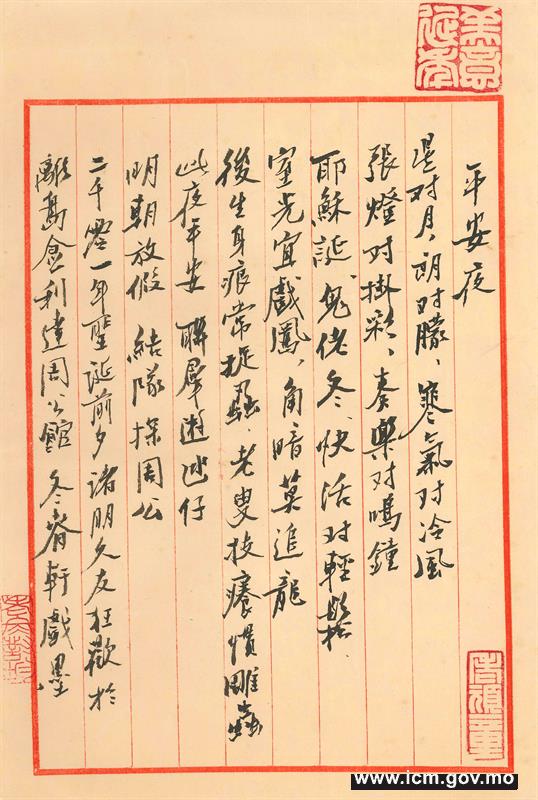 美意延年
平安夜
星对月、朗对朦、寒氣对冷風
張燈对掛彩、奏樂对鳴鐘
耶穌誕、鬼佬冬、快活对輕鬆、
室光宜戲鳳、角暗莫追龍
後生身痕常捉蝨、老叟技癢慣雕蟲
此夜平安 聯羣遊氹仔
明朝放假 結隊探周公
二千零一年聖誕前夕諸朋久友狂歡於
離島金利達周公館 冬春軒戲墨
老頑童
www.icm.gov.mo